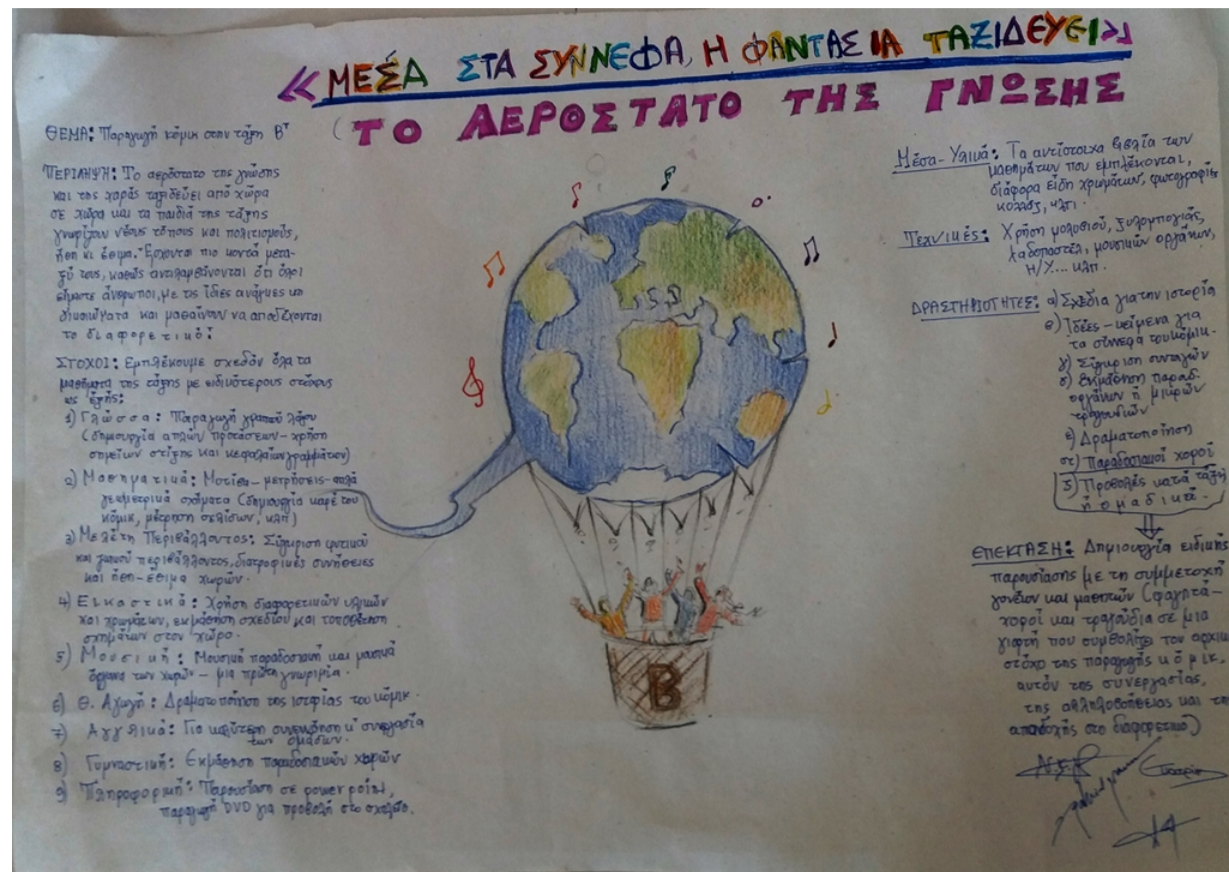 «ΜΕΣΑ ΣΤΑ ΣΥΝΝΕΦΑ, Η ΦΑΝΤΑΣΙΑ ΤΑΞΙΔΕΥΕΙ»
(ΤΟ ΑΕΡΟΣΤΑΤΟ ΤΗΣ ΓΝΩΣΗΣ
ΘΕΜΑ: Παραγωγή κόμικ στην τάξη Β'
ΠΕΡΙΛΗΨΗ: Το αερόστατο της γνώσης
και της χαράς ταξιδεύει από χώρα
σε χώρα και τα παιδιά της τάξης
γνωρίζουν νέους τόπους και πολιτισμούς,
ήθη κι έθιμα. Έρχονται πιο κοντά μετα-
ξύ τους, καθώς αντιλαμβάνονται ότι όλοι
είμαστε άνθρωποι, με τις ίδιες ανάγκες κι
δικαιώματα και μαθαίνουν να αποδέχονται
το διαφορετικό!
ΣΤΟΧΟΙ: Εμπλέκουμε σχεδόν όλα τα
μαθήματα της τάξης με ειδικότερους στόχους
ως εξής:
1) Γλώσσα: Παραγωγή γραπτού λόγου
(δημιουργία απλών προτάσεων - χρήση
σημείων στίξης και κεφαλαίων γραμμάτων)
2) Μαθηματικά: Μοτίβα - μετρήσεις - απλά
γεωμετρικά σχήματα (δημιουργία καρέ του
κόμικ, μέτρηση σελίδων, κλπ)
3) Μελέτη Περιβάλλοντος: Σύγκριση φυτικού
και ζωικού περιβάλλοντος, διατροφικές συνήθειες
και ήθη - έθιμα χωρών.
4) Εικαστικά: Χρήση διαφορετικών υλικών
και χρωμάτων, εκμάθηση σχεδίου και τοποθέτηση
σχημάτων στον χώρο.
5) Μουσική: Μουσική παραδοσιακή και μουσικά
όργανα των χωρών - μια πρώτη γνωριμία.
6) Θ. Αγωγή: Δραματοποίηση της ιστορίας του κόμικ.
7) Αγγλικά: Για καλύτερη συνεννόηση κ' συνεργασία
των ομάδων.
8) Γυμναστική: Εκμάθηση παραδοσιακών χορών
9) Πληροφορική: Παρουσίαση σε power point,
παραγωγή DVD για προβολή στο σχολείο.
Β
Μέσα - Υλικά: Τα αντίστοιχα βιβλία των
μαθημάτων που εμπλέκονται,
διάφορα είδη χρωμάτων, φωτογραφίες
κολλάζ, κλπ.
Τεχνικές: Χρήση μολυβιού, ξυλομπογιάς,
λαδοπαστέλ, μουσικών οργάνων,
Η/Υ... κλπ.
ΔΡΑΣΤΗΡΙΟΤΗΤΕΣ: α) Σχέδια για την ιστορία
β) Ιδέες - κείμενα για
τα σύννεφα του κόμικ.
γ) Σύγκριση συνταγών
δ) Εκμάθηση παραδ.
οργάνων ή μικρών
τραγουδιών
ε) Δραματοποίηση
στ) Παραδοσιακοί χοροί
ζ) Προβολές κατά τάξη
ή ομαδικά.
ΕΠΕΚΤΑΣΗ: Δημιουργία ειδικής
παρουσίασης με τη συμμετοχή
γονέων και μαθητών (φαγητά -
χοροί και τραγούδια σε μια
γιορτή που συμβολίζει τον αρχικ
στόχο της παραγωγής κόμικ,
αυτόν της συνεργασίας,
της αλληλοβοήθειας και τη
αποδοχής στο διαφορετικό)